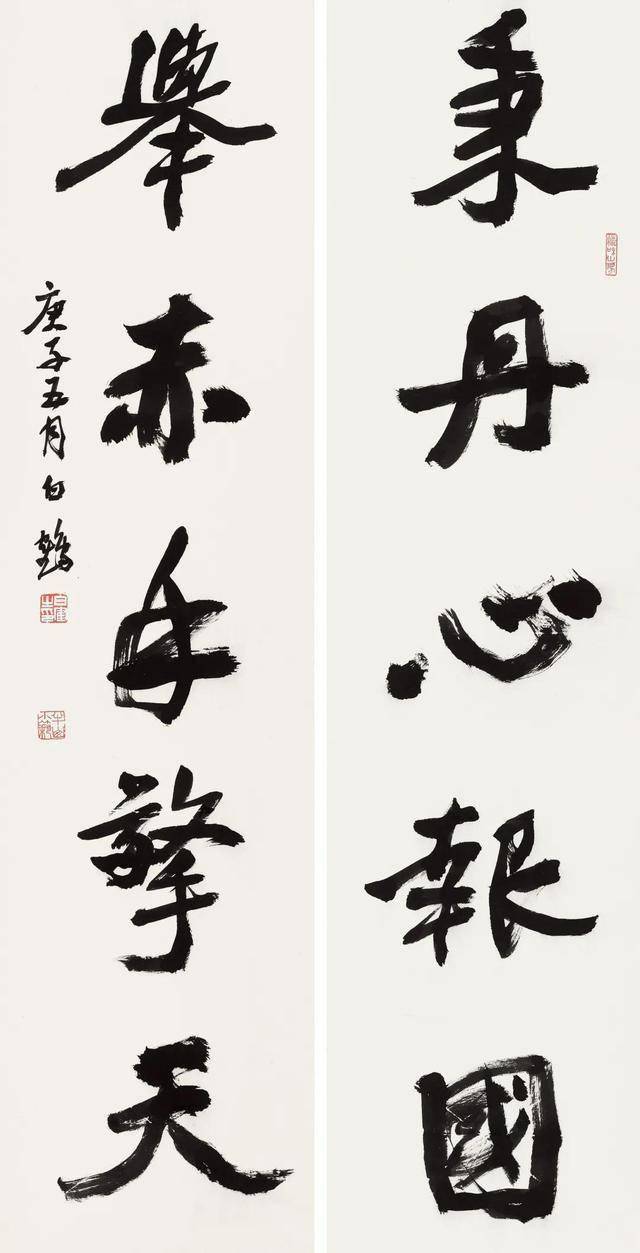 秉丹心報國
舉赤手擎天
庚子五月白鶴